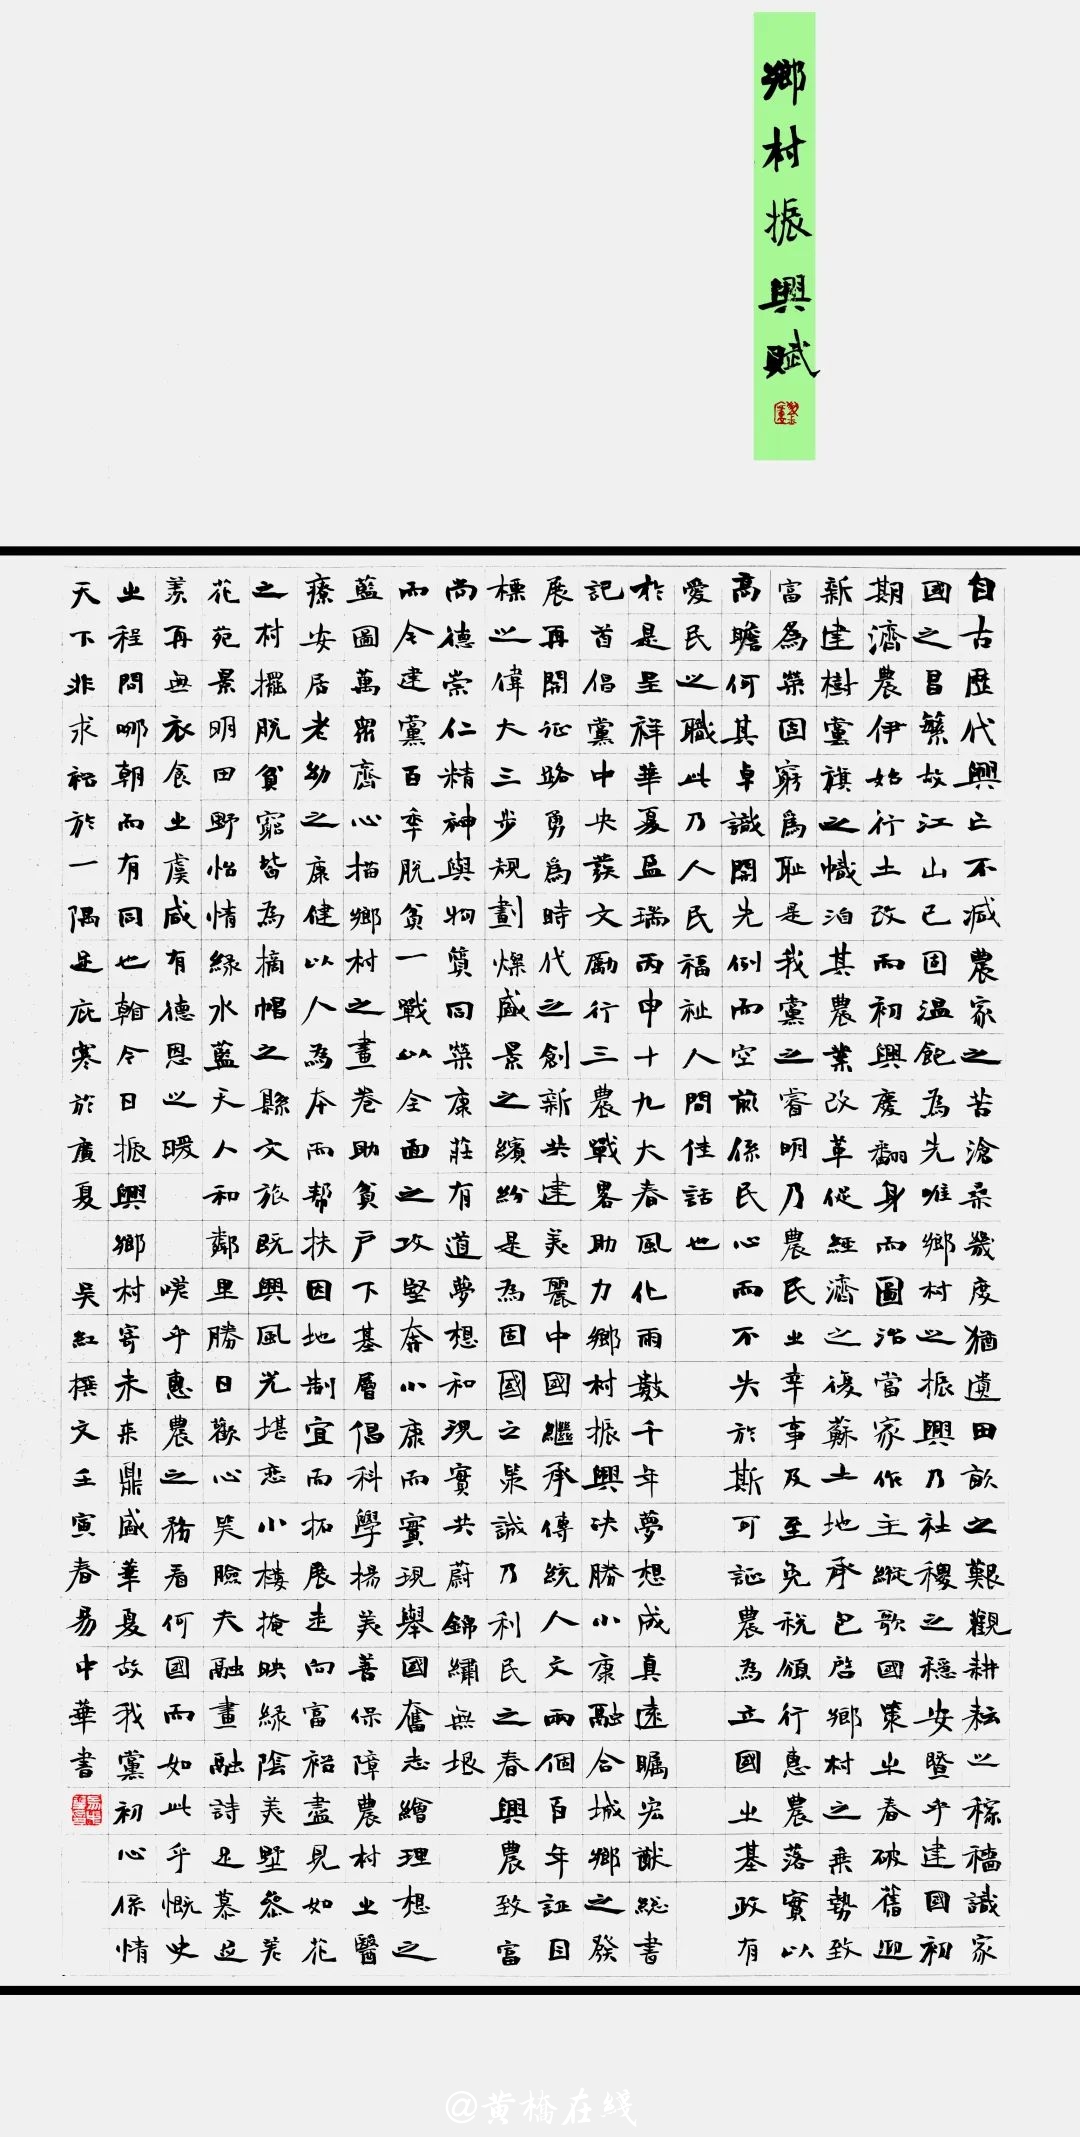 鄉村振興賦
自古歷代興亡不減農家之苦滄桑幾度猶遺田畝之艱觀耕耘之稼穡識家
國之昌繁故江山已固溫飽為先唯鄉村之振興乃社稷之穩安暨乎建國初
期濟農伊始行土改而初興廢翻身而圖治當家作主縱歌國策之春破舊迎
新建樹黨旗之幟泊其農業改革促經濟之復蘇土地承包啓鄉村之乘勢致
富為榮固窮為恥是我黨之睿明乃農民之幸事及至免稅頒行惠農落實以
高瞻何其卓識開先例而空前係民心而不失於斯可証農為立國之基政有
愛民之職此乃人民福祉人間佳話也
於是呈祥華夏盈瑞丙申十九大春風化雨數千年夢想成真遠矚宏猷總書
記首倡黨中央發文勵行三農戰略助力鄉村振興決勝小康融合城鄉之發
展再開征路勇為時代之創新共建美麗中國繼承傳統人文兩個百年証目
標之偉大三步規劃燦盛景之繽紛是為固國之策誠乃利民之春興農致富
尚德崇仁精神與物質同榮康莊有道夢想和現實共蔚錦繡無垠
而今建黨百年脫貧一戰以全面之攻堅奔小康而實現舉國奮志繪理想之
藍圖萬眾齊心描鄉村之畫卷助貧戶下基層倡科學揚美善保障農村之醫
療安居老幼之康健以人為本而幫扶因地制宜而拓展走向富裕盡見如花
之村擺脫貧窮皆為摘帽之縣文旅既興風光堪戀小樓掩映綠陰美墅參差
花苑景明田野怡情綠水藍天人和鄰里勝日歡心笑臉夫融畫融詩足慕足
羨再無衣食之虞咸有德恩之暖 嘆乎惠農之務看何國而如此乎慨史
之程問哪朝而有同也翰今日振興鄉村寄未來鼎盛華夏故我黨初心係情
天下非求裕於一隅足庇寒於廣夏 吳紅撰文壬寅春易中華書
@黄橋在綫